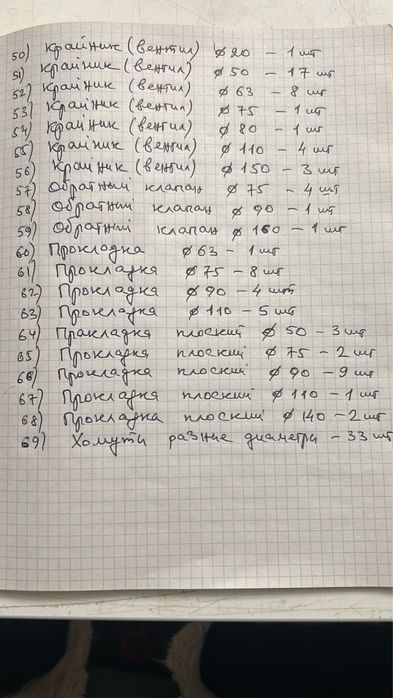 50) Крайник (вентил) ø 20 - 1 шт
51) Крайник (вентил) ø 50 - 17 шт
52) Крайник (вентил) ø 63 - 8 шт
53) Крайник (вентил) ø 75 - 1 шт
54) Крайник (вентил) ø 80 - 1 шт
55) Крайник (вентил) ø 110 - 4 шт
56) Крайник (вентил) ø 150 - 3 шт
57) Обратний клапан ø 75 - 4 шт
58) Обратний клапан ø 90 - 1 шт
59) Обратний клапан ø 160 - 1 шт
60) Прокладка ø 63 - 1 шт
61) Прокладка ø 75 - 8 шт
62) Прокладка ø 90 - 4 шт
63) Прокладка ø 110 - 5 шт
64) Пракладка плоский ø 50 - 3 шт
65) Прокладка плоский ø 75 - 2 шт
66) Прокладка плоский ø 90 - 9 шт
67) Прокладка плоский ø 110 - 1 шт
68) Прокладка плоский ø 140 - 2 шт
69) Хомути разние диаметри - 33 шт